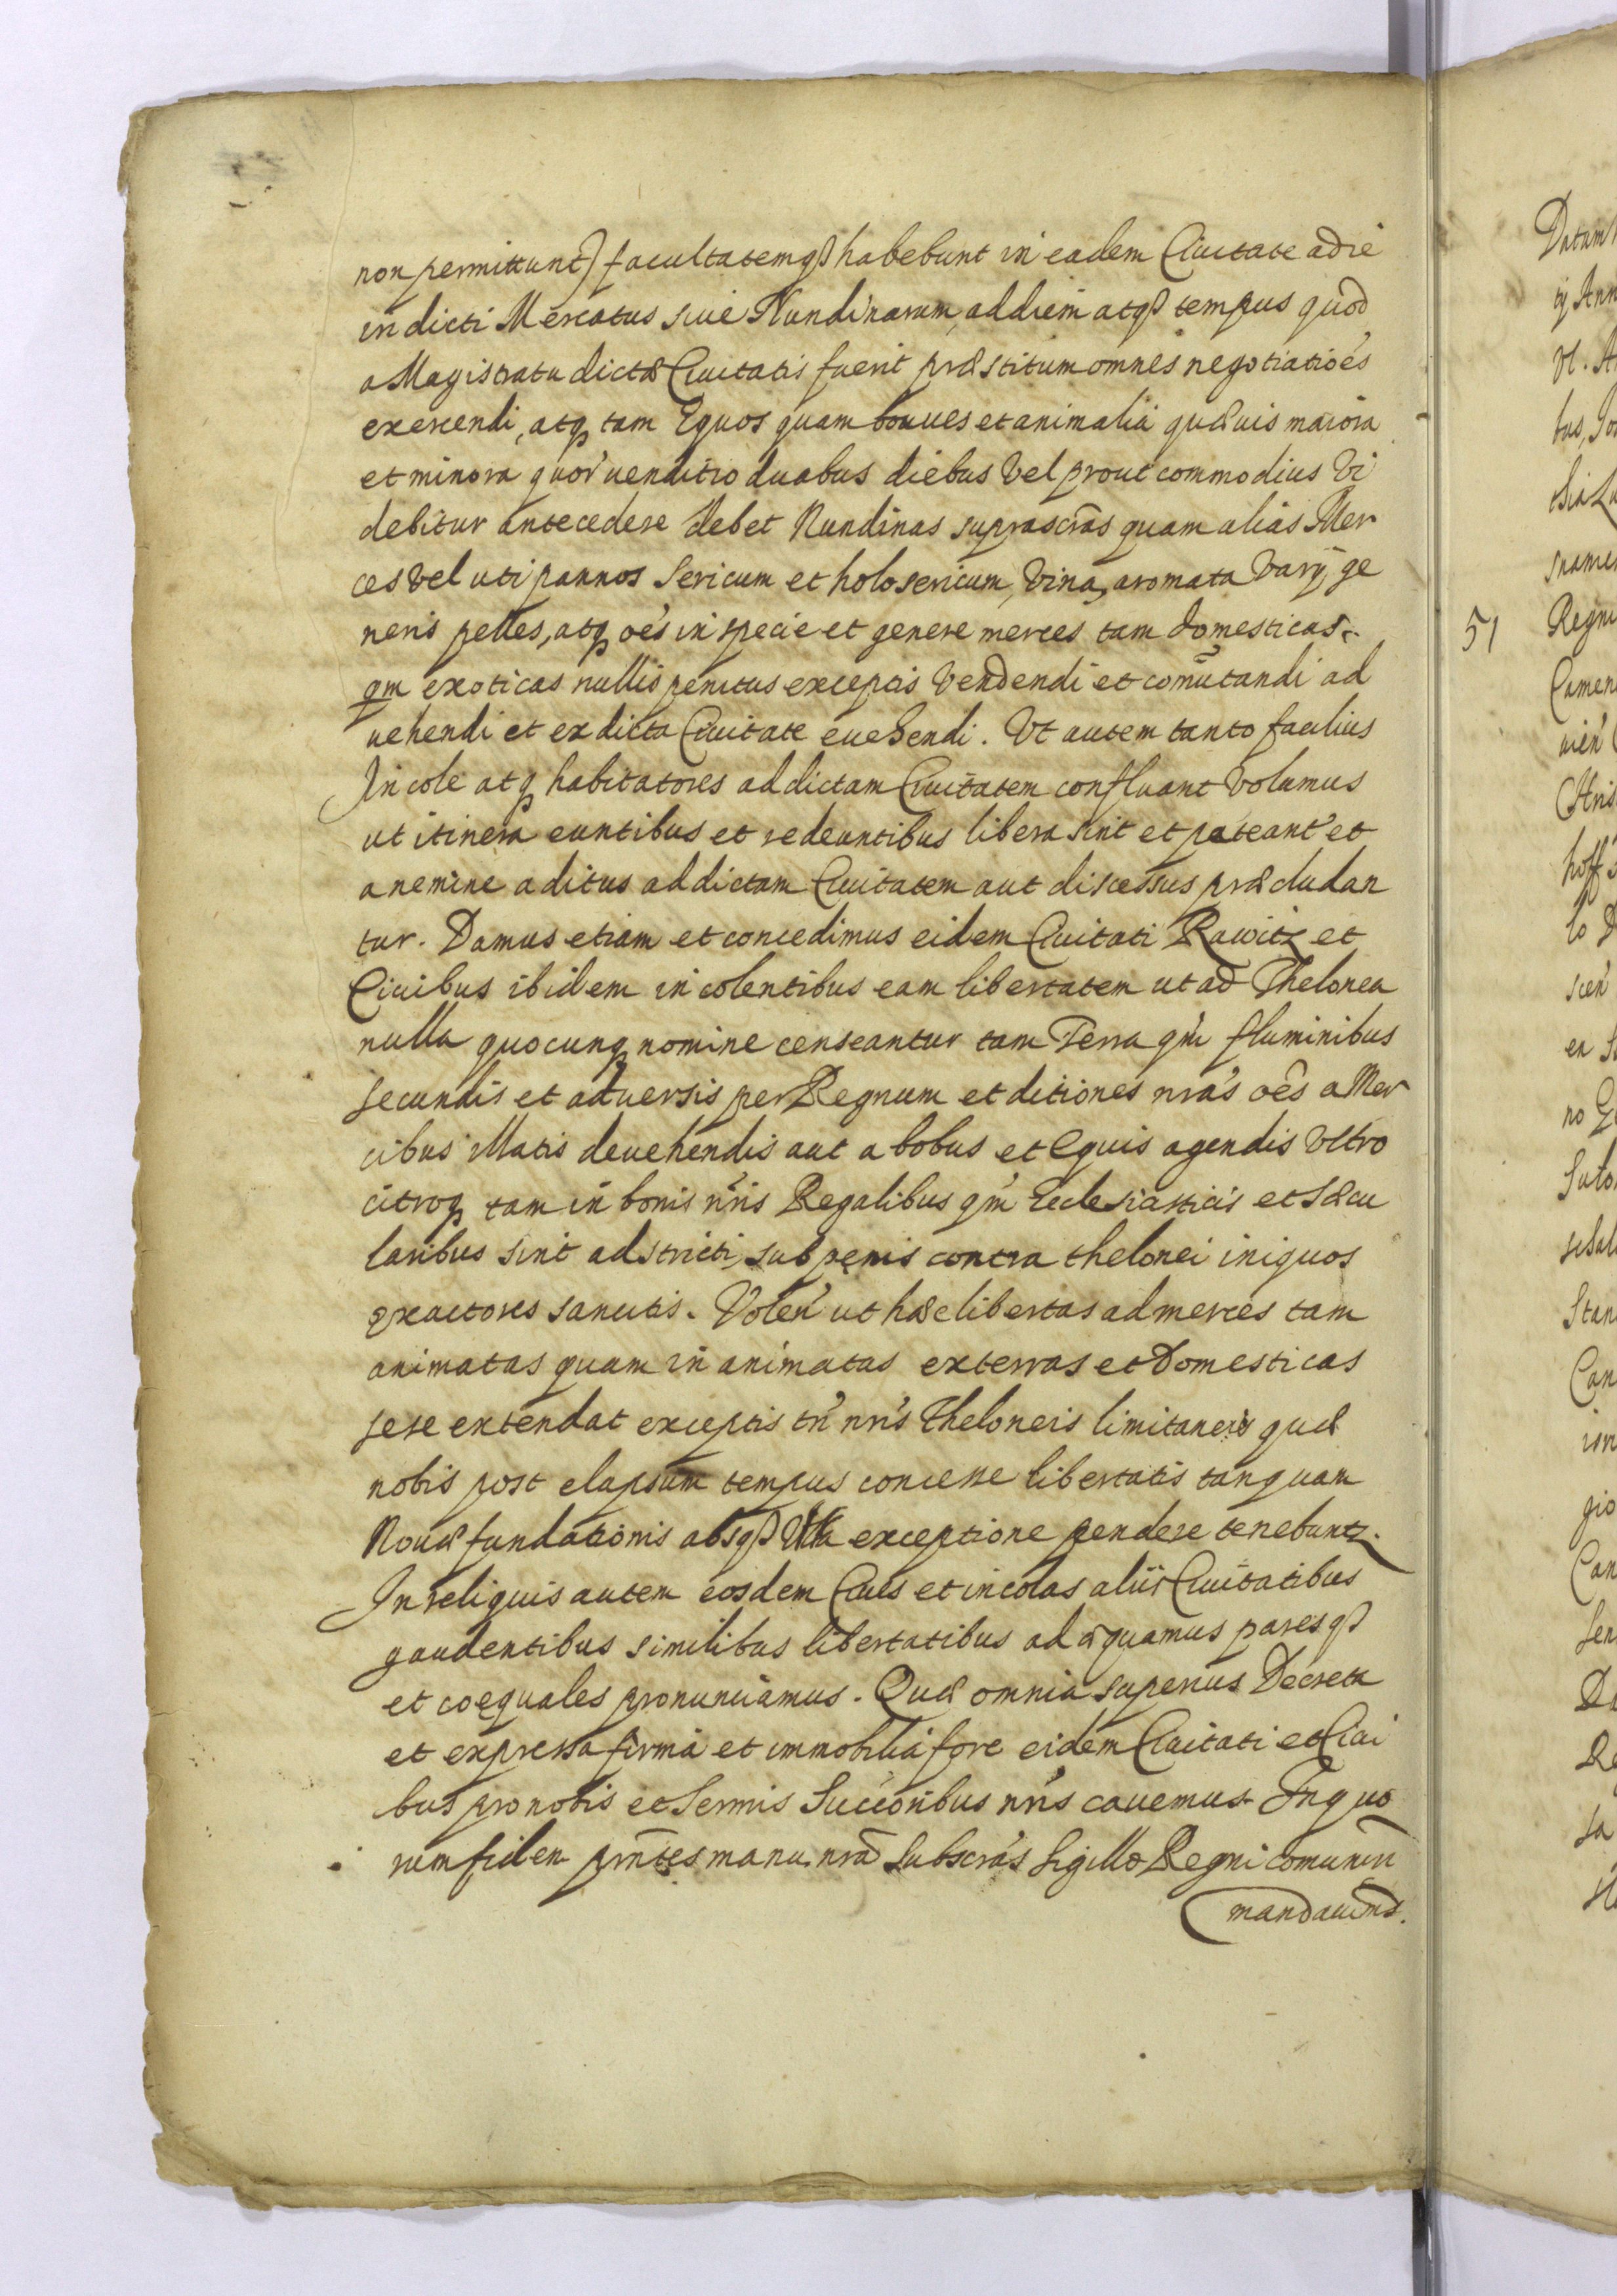 non permittunt) facultatemq₃ habebunt in eadem Ciuitate a die
indicti Mercatus siue Nundinarum, ad diem atq₃ tempus quod
a Magistratu dictæ Ciuitatis fuerit præstitum omnes negotiatiões
exercendi, atq₃ tam Equos quam boues et animalia quæuis maiora
et minora quor' uenditio duabus diebus Vel prout commodius Vi
debitur antecedere debet Nundinas suprascrãs quam alias Mer
ces vel uti pannos Sericum et holosericum, Vina, aromata Varij ge
neris pelles, atq₃ oẽs in specie et genere merces tam domesticas
qm exoticas nullis penitus exceptis Vendendi et com̃utandi ad
uehendi et ex dicta Ciuitate euehendi. Vt autem tanto facilius
Incole atq₃ habitatores ad dictam Ciuitatem confluant Volumus
ut itinera euntibus et redeuntibus libera sint et pateant et
a nemine aditus ad dictam Ciuitatem aut discessus præcludan
tur. Damus etiam et concedimus eidem Ciuitati Rawitz et
Ciuibus ibidem incolentibus eam libertatem ut ad Thelonea
nulla quocunq₃ nomine censeantur tam Terra qm̃ fluminibus
secundis et aduersis per Regnum et ditiones nrãs oẽs a Mer
cibus Matis deuehendis aut a bobus et Equis agendis Vltro
citroq₃ tam in bonis nr̃is Regalibus qm̃ Ecclesiasticis et Sæcu
laribus sint adstricti, sub pęnis contra thelonei iniquos
exactores sancitis. Volen' ut hæc libertas ad merces tam
animatas quam inanimatas externas et Domesticas
sese extendat exceptis tñ nr̃is Theloneis limitaneis quæ
nobis post elapsum tempus concesse libertatis tanquam
Nouæ fundationis absq₃ Vlla exceptione pendere tenebuntz.
In reliquis autem eosdem Ciues et incolas aliis Ciuitatibus
gaudentibus similibus libertatibus adæquamus paresq₃
et coęquales pronunciamus. Quæ omnia superius Decreta
et expressa firma et immobilia fore eidem Ciuitati et Ciui
bus pro nobis et Sermis Succoribus nr̃is cauemus. In quo
rum fidem prñtes manu nrã Subscrãs Sigillo Regni comuniri
mandauims.
51
Datum
ij Ann
bus, Jo
Regni
hoff
Can
Stan
Can
gio